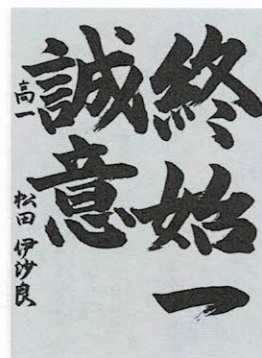 終始一
誠意
高一 松田伊沙良